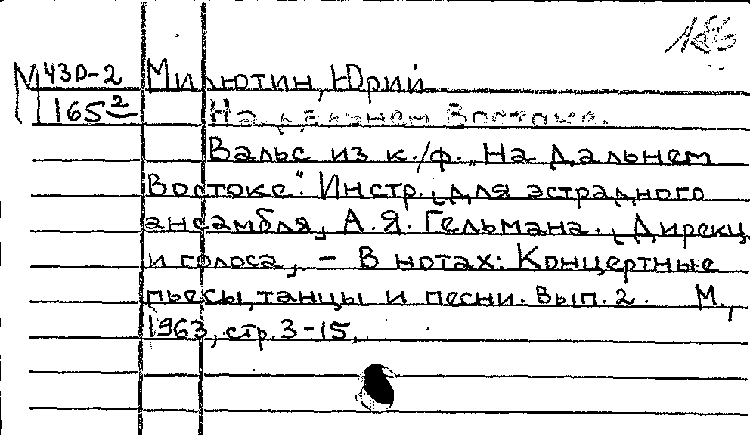 186
М 43D-2 Милютин, Юрий
165² На дальнем Востоке.
Вальс из к./ф. „На Дальнем
Востоке". Инстр. для эстрадного
ансамбля, А.Я. Гельмана. Дирекц.
и голоса, - В нотах: Концертные
пьесы, танцы и песни. Вып. 2. М.,
1963, стр. 3-15.